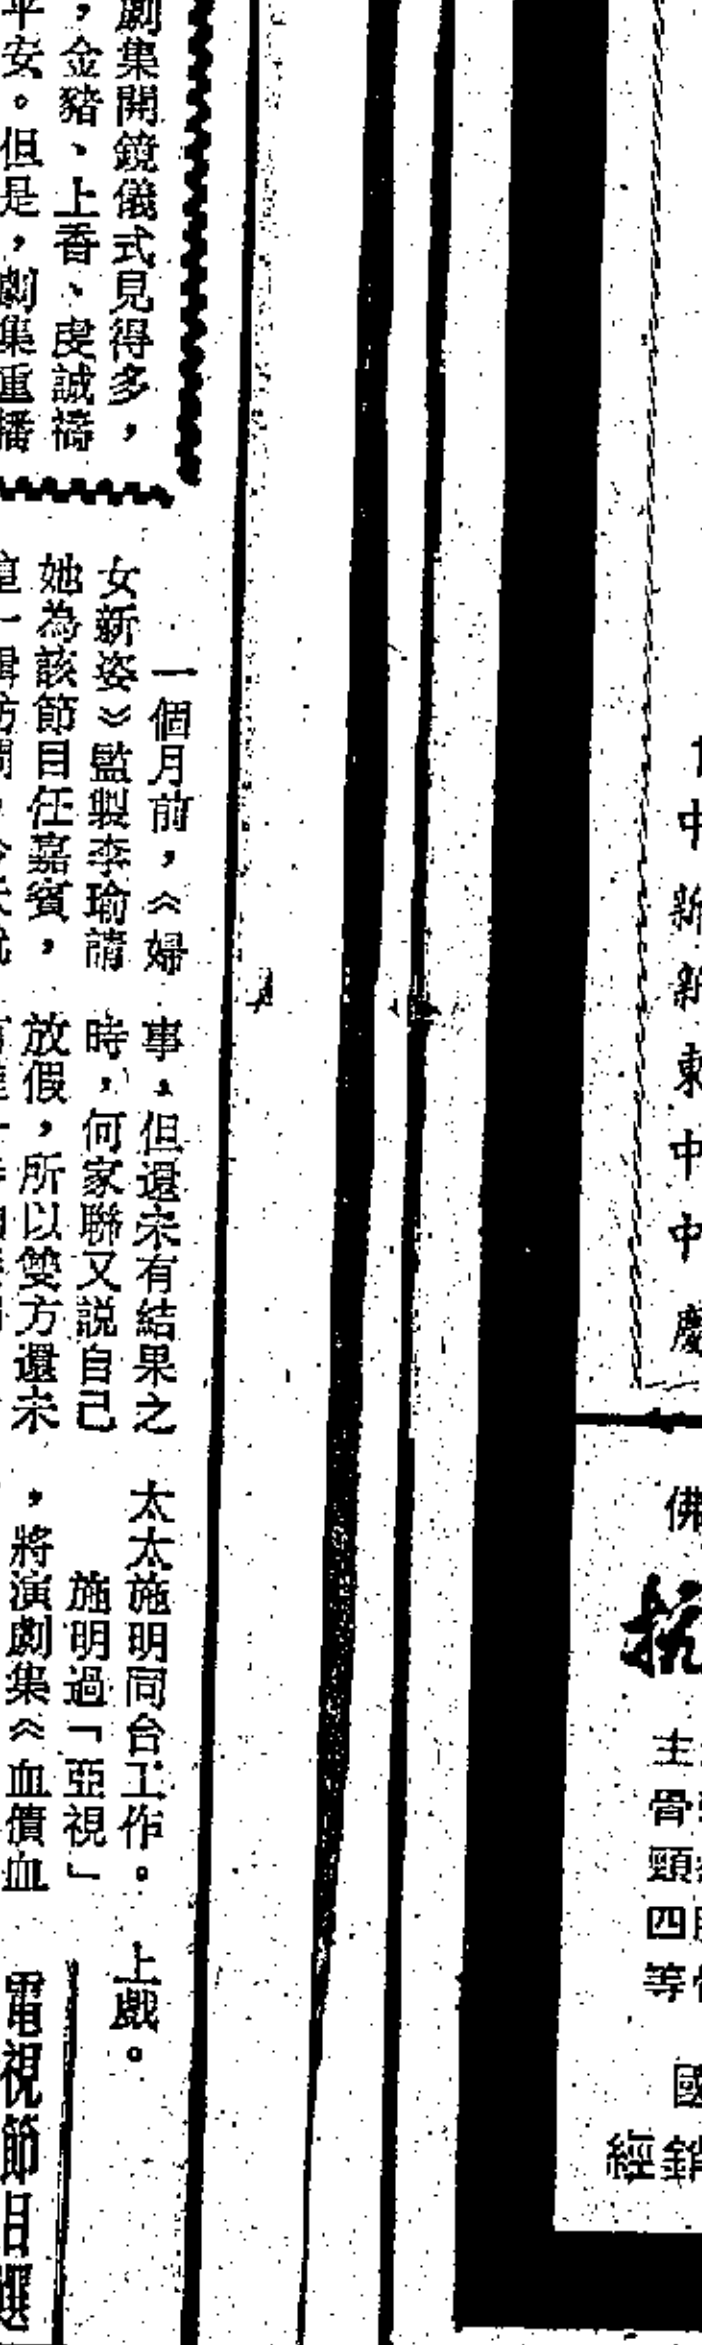 劇集開鏡儀式見得多，
，金豬、上香、虔誠禱
平安。但是，劇集重播
一個月前，《婦
女新姿》監製李瑜請
她為該節目任嘉賓，
事，但還未有結果之
時，何家聯又説自己
放假，所以雙方還未
太太施明同台工作。
施明過「亞視」
，將演劇集《血債血
上戲。
電視節目選
中
新
新
東
中
中
慶
佛
抗
主
骨
頸
四
等
國
經銷